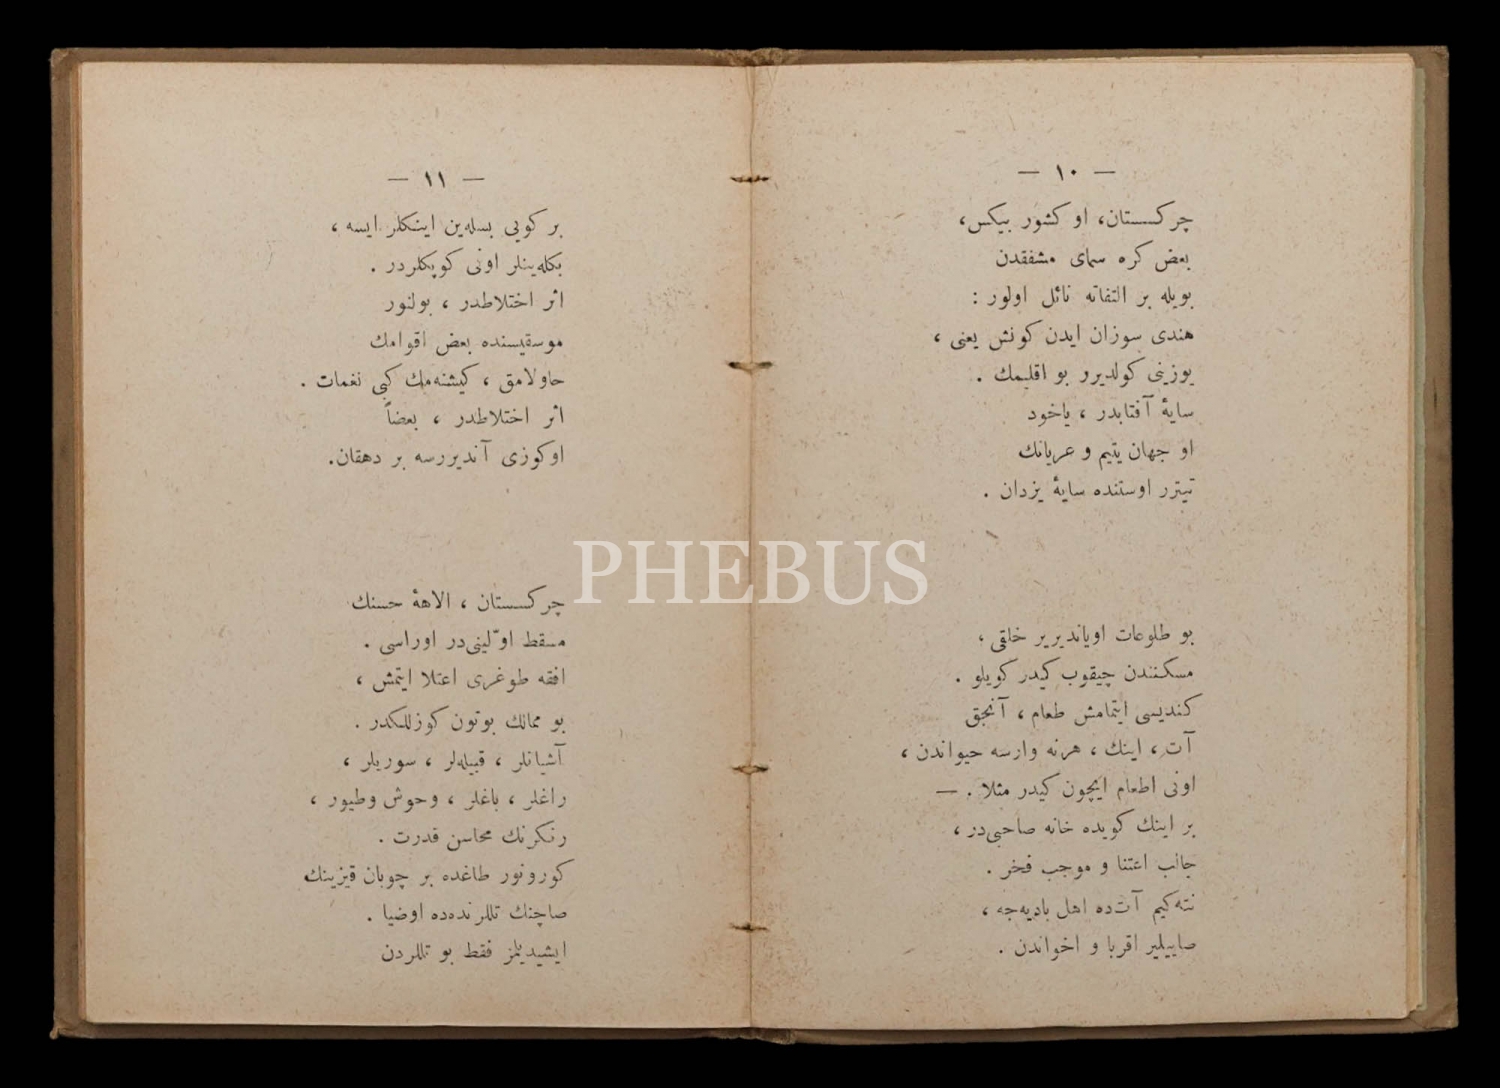 — ١٠ —
چركسستان، او كشور بيكس،
بعض كره سماى مشفقدن
بويله بر التفاته نائل اولور :
هندى سوزان ايدن كونش يعنى ،
يوزينى كولديرر بو اقليمك .
سايهٔ آفتابدر ، ياخود
او جهان يتيم و عريانك
تيترر اوستنده سايهٔ يزدان .
بو طلوعات اويانديرير خلقى ،
مسكنندن چيقوب كيدر كويلو .
كنديسى ايتمامش طعام ، آنجق
آت ، اينك ، هرنه وارسه حيواندن ،
اونى اطعام ايچون كيدر مثلا . —
بر اينك كويده خانه صاحبى‌در ،
جالب اعتنا و موجب فخر .
نته‌كيم آت‌ده اهل باديه‌جه ،
صاييلير اقربا و اخواندن .
— ١١ —
بر كويى بسله‌ين اينكلر ايسه ،
بكله‌ينلر اونى كوپكلردر .
اثر اختلاطدر ، بولنور
موسقيسنده بعض اقوامك
حاولامق ، كيشنه‌مك كبى نغمات .
اثر اختلاطدر ، بعضاً
اوكوزى آنديررسه بر دهقان.
چركسستان ، الاههٔ حسنك
مسقط اوّلينى‌در اوراسى .
افقه طوغرى اعتلا ايتمش ،
بو ممالك بوتون كوزللكدر .
آشيانلر ، قبيله‌لر ، سوريلر ،
راغلر ، باغلر ، وحوش وطيور ،
رنكرنك محاسن قدرت .
كورونور طاغده بر چوبان قيزينك
صاچنك تللرنده‌ده اوضيا .
ايشيديلمز فقط بو تللردن
PHEBUS